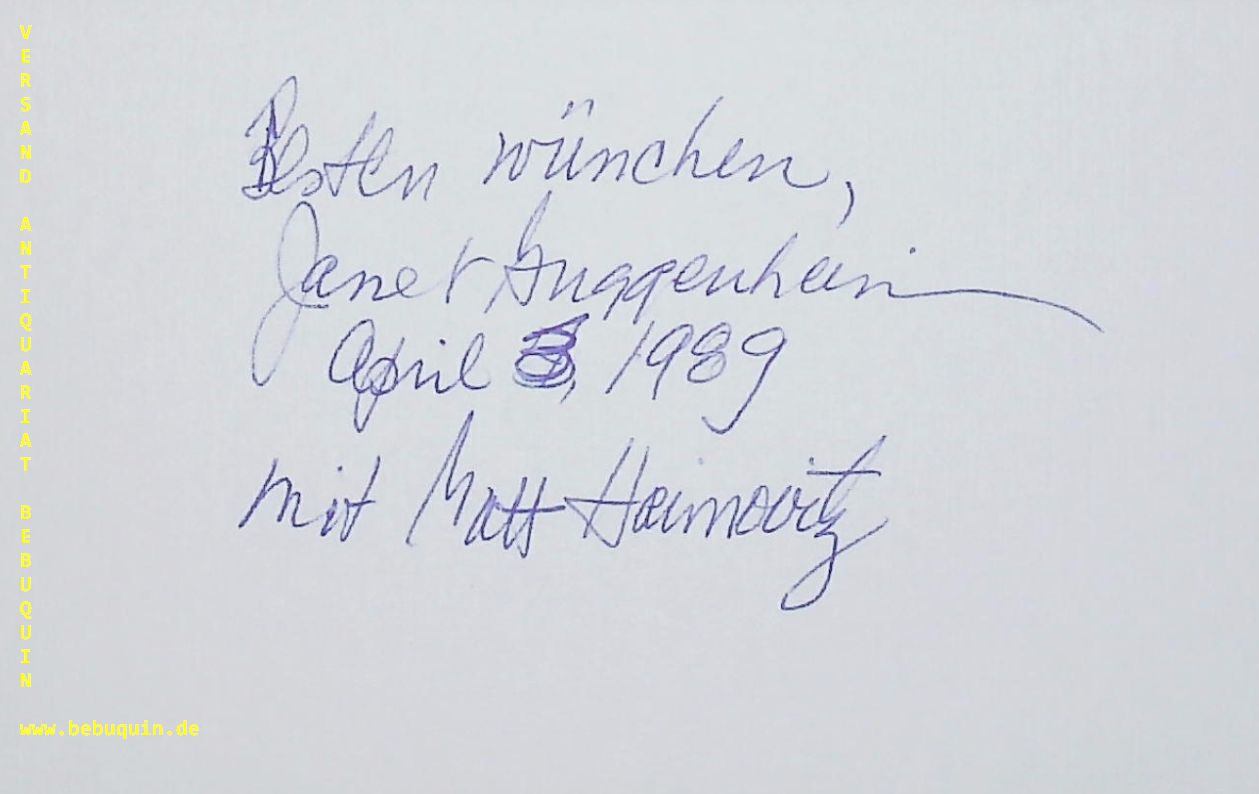 Besten wünchen,
Janet Guggenheim
April 3, 1989
mit Matt Haimovitz
VERSAND ANTIQUARIAT BEBUQUIN
www.bebuquin.de